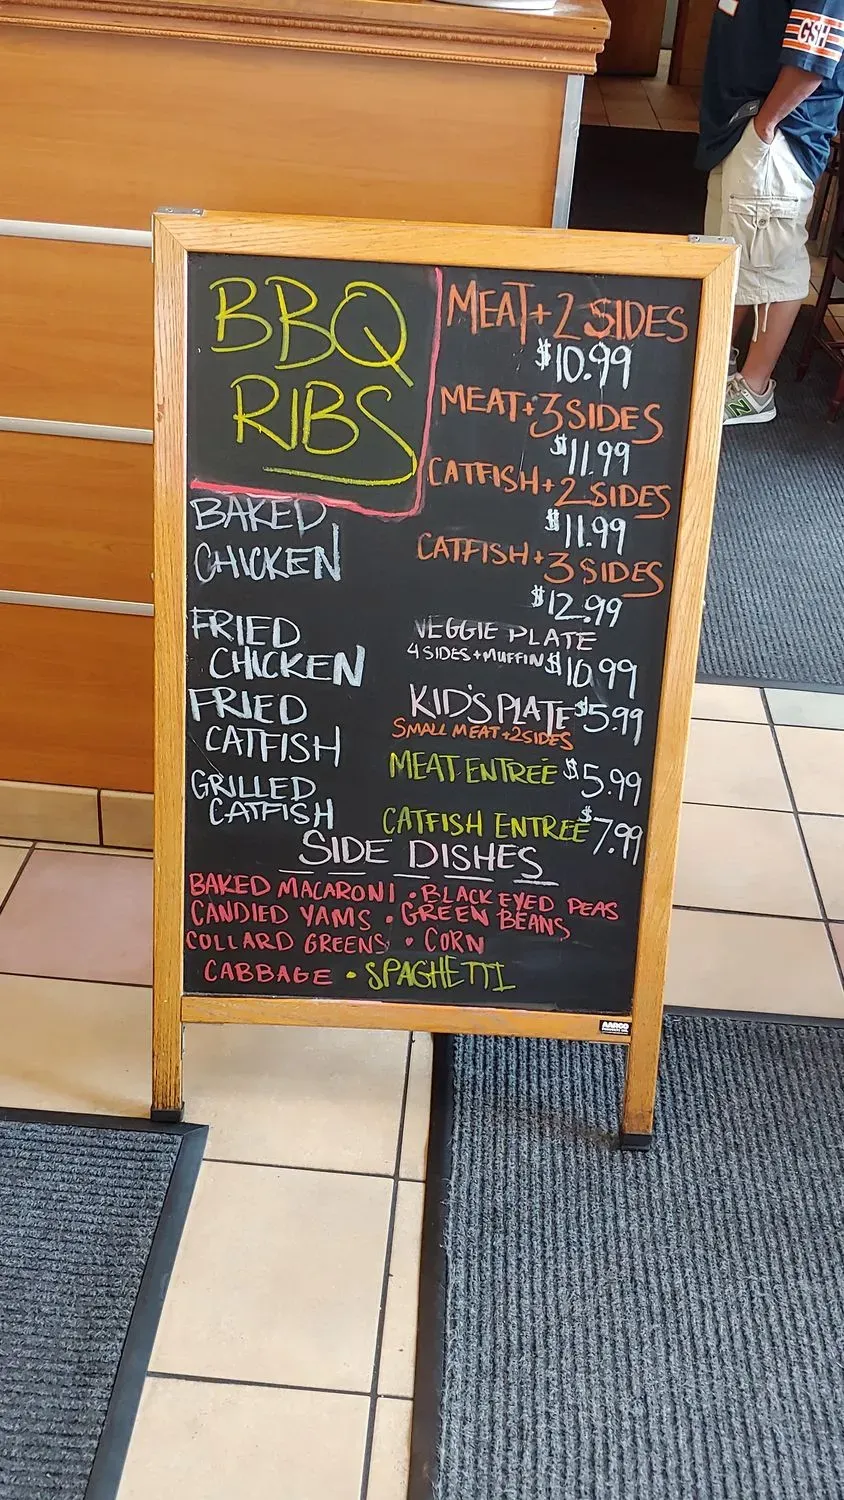 GSH
BBQ
RIBS
BAKED
CHICKEN
FRIED
CHICKEN
FRIED
CATFISH
GRILLED
CATFISH
MEAT + 2 SIDES
$10.99
MEAT + 3 SIDES
$11.99
CATFISH + 2 SIDES
$11.99
CATFISH + 3 SIDES
$12.99
VEGGIE PLATE
4 SIDES + MUFFIN $10.99
KID'S PLATE $5.99
SMALL MEAT + 2 SIDES
MEAT ENTREE $5.99
CATFISH ENTREE $7.99
SIDE DISHES
BAKED MACARONI • BLACK EYED PEAS
CANDIED YAMS • GREEN BEANS
COLLARD GREENS • CORN
CABBAGE • SPAGHETTI
AARCO